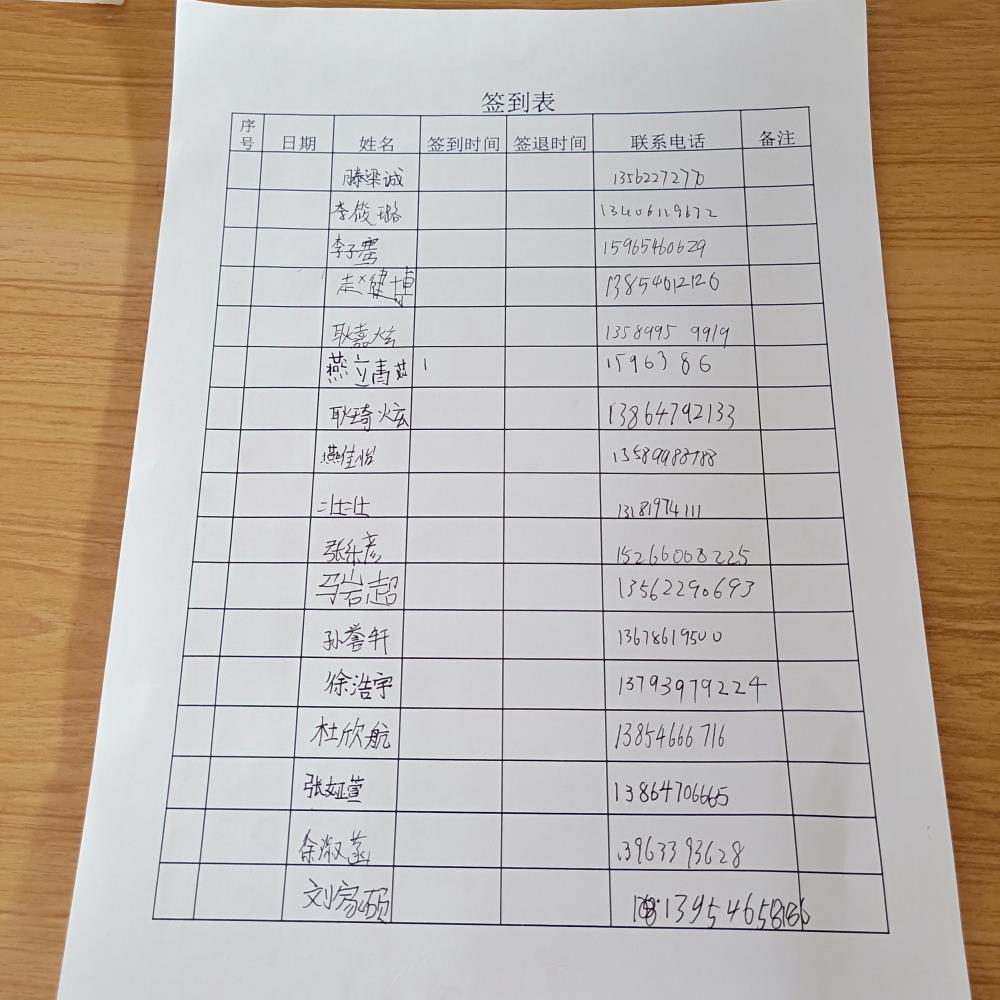 签到表
序号 日期 姓名 签到时间 签退时间 联系电话 备注
滕梁诚 13562272770
李筱璐 13406119672
李子骞 15965460629
赵健博 13854012126
耿嘉炫 1358995 9919
燕立青茹 1 15963 86
耿琦炫 13864792133
燕佳怡 13589988788
13181974111
张乐彦 15266008225
马岩超 13562290693
孙誉轩 13678619500
徐浩宇 13793979224
杜欣航 13854666716
张娅萱 13864706665
徐淑菡 13963393628
刘家硕